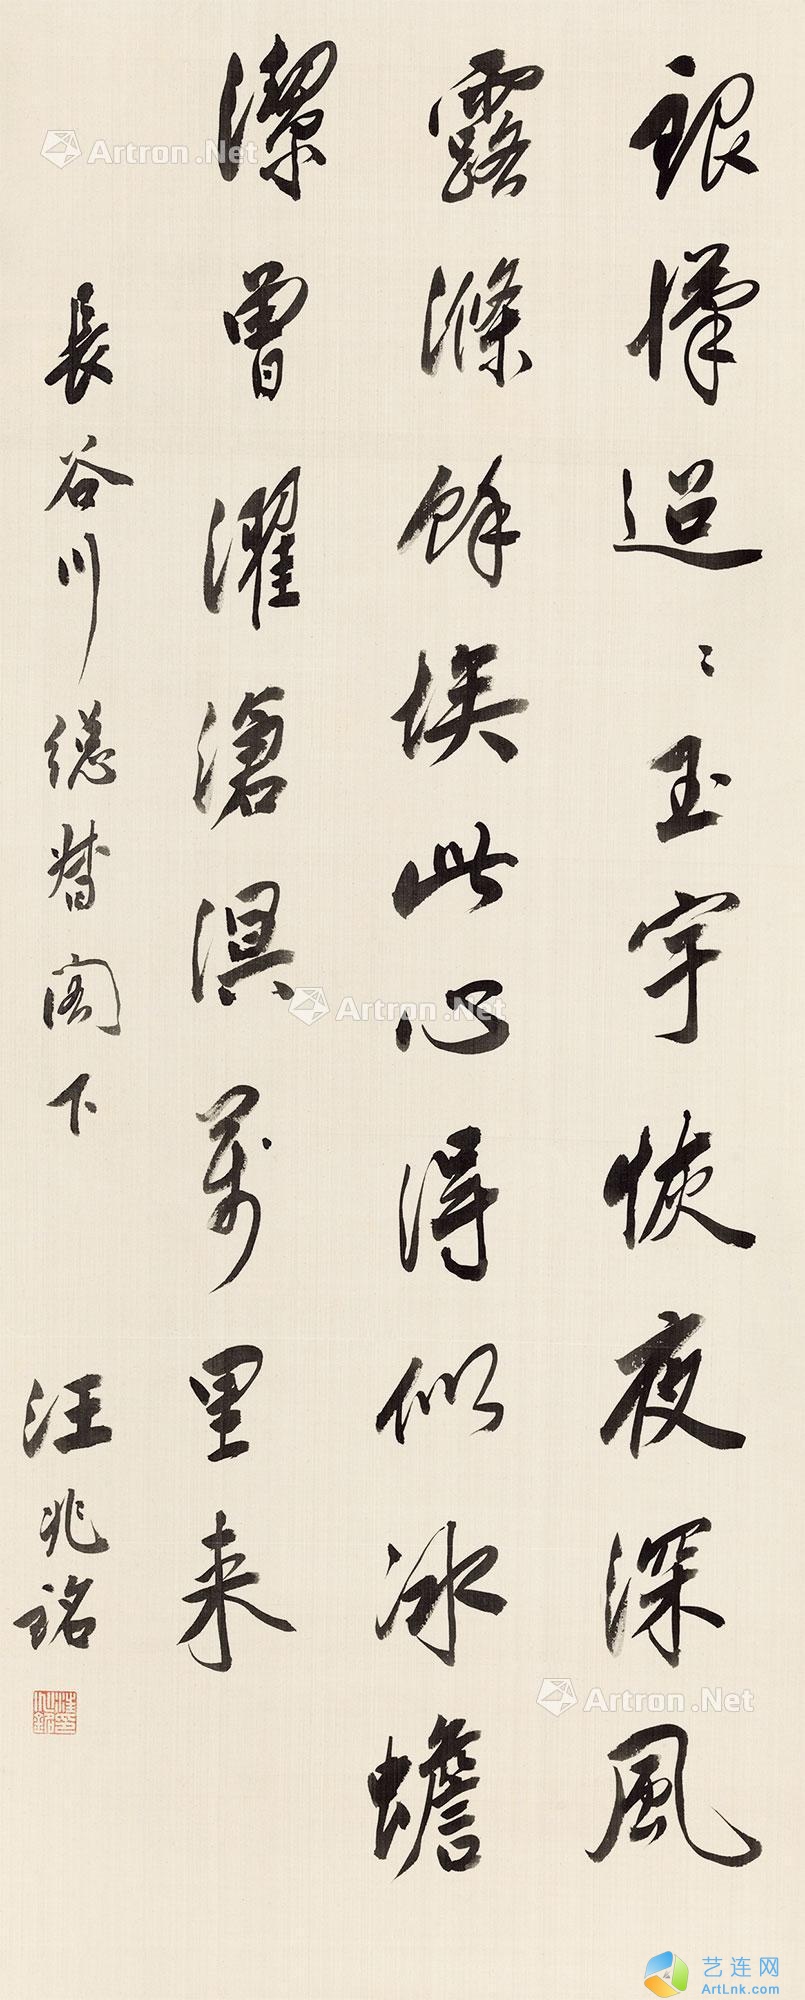 銀漢迢〻玉宇恢夜深風
露滌餘埃此心得似冰蟾
潔曾濯滄溟萬里来
長谷川總督閣下
汪兆銘
汪兆銘
Artron.Net
Artron.Net
Artron.Net
艺连网
ArtLnk.com